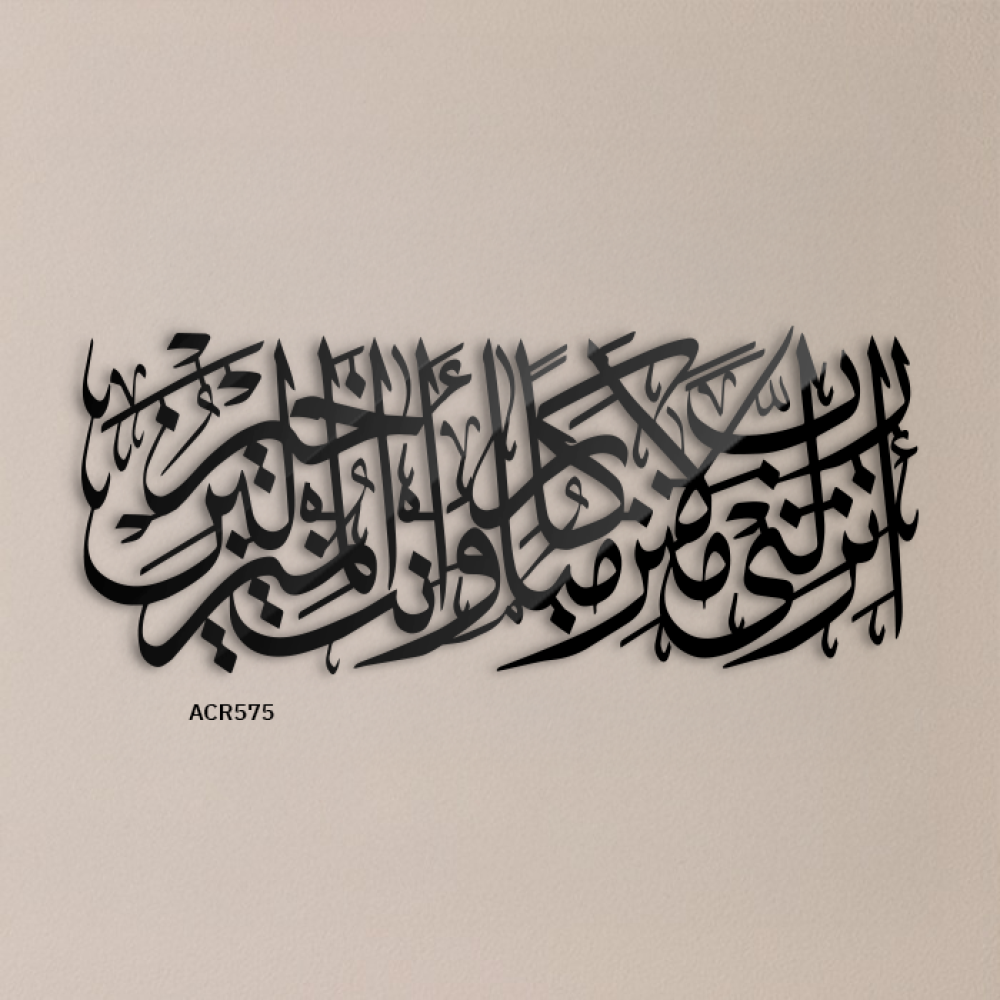 رب أنزلني منزلا مباركا وأنت خير المنزلين
ACR575